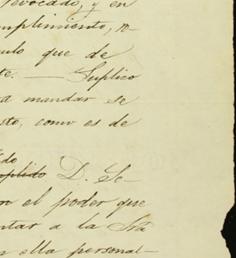 revocado, y en
cumplimiento, re-
ulo que de
te. — Suplico
a mandar se
sto, como es de
do
D. Se-
n el poder que
ntar a la Sra
n ella personal-